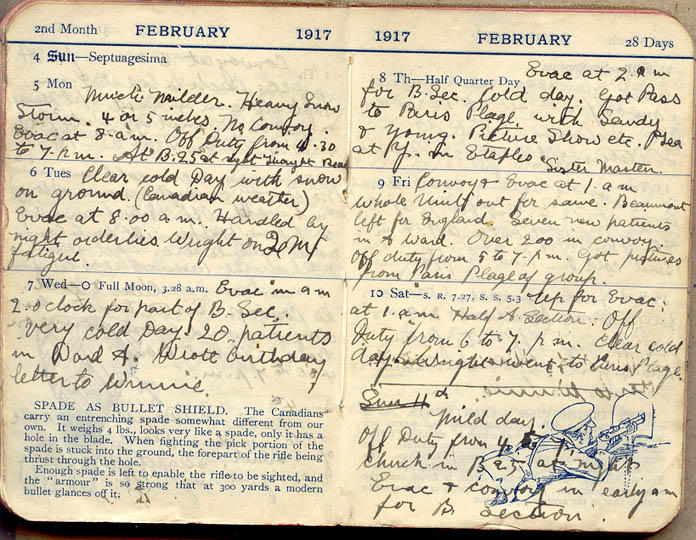 2nd Month FEBRUARY 1917
4 Sun—Septuagesima
5 Mon
Much milder. Heavy Snow
Storm. 4 or 5 inches No Convoy.
Evac at 8 a.m. Off Duty from 4.30
to 7 p.m. At B. 25 at night
6 Tues Clear cold Day with snow
on ground. (Canadian weather)
Evac at 8.00 a.m. Handled by
night orderlies Wright on
fatigue.
7 Wed—O Full Moon, 3.28 a.m. Evac in a m
2. o clock for part of B. Sec.
Very cold Day. 20 patients
in Ward A. Wrote birthday
letter to Winnie.
SPADE AS BULLET SHIELD. The Canadians
carry an entrenching spade somewhat different from our
own. It weighs 4 lbs., looks very like a spade, only it has a
hole in the blade. When fighting the pick portion of the
spade is stuck into the ground, the forepart of the rifle being
thrust through the hole.
Enough spade is left to enable the rifle to be sighted, and
the "armour" is so strong that at 300 yards a modern
bullet glances off it.
1917 FEBRUARY 28 Days
8 Th—Half Quarter Day Evac at 2. a m
for B. Sec. Cold day. Got Pass
to Paris Plage with Sandy
& Young. Picture Show etc.
at in Etaples
Sister Masten.
9 Fri Convoy & Evac at 1. a m
whole Unit out for same. Beaumont
left for England. Seven new patients
in A ward. Over 200 in convoy.
Off duty from 5 to 7 p.m. Got pictures
from Paris Plage of group.
10 Sat—S. R. 7.27, S. S. 5.3 Up for Evac:
at 1. a m Half A. Section. Off
Duty from 6 to 7. p.m. Clear cold
day. went to Paris Plage.
Sun 11th
Mild day.
Off Duty from 4
church in B 25 at night
Evac & convoy in early a m
for B Section.